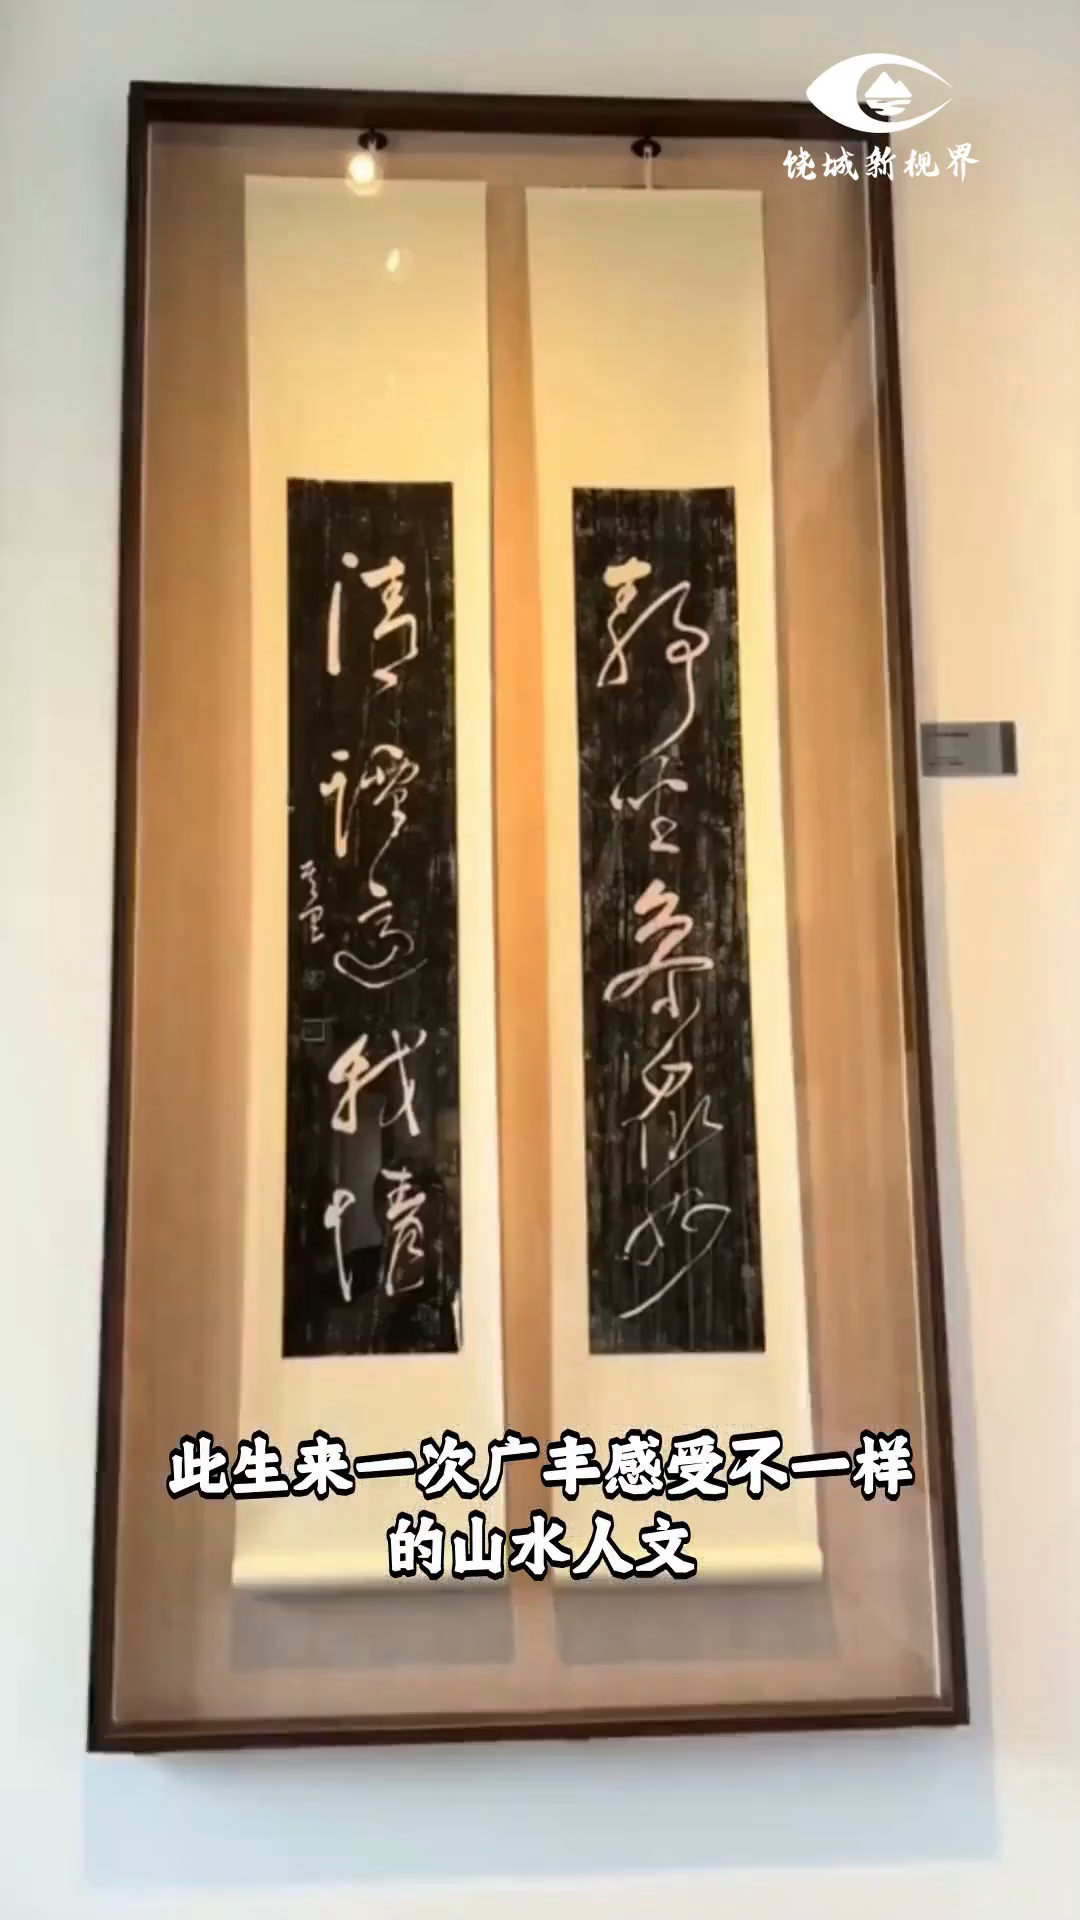 饶城新视界
静坐参众妙
清谭适我情
此生来一次广丰感受不一样
的山水人文